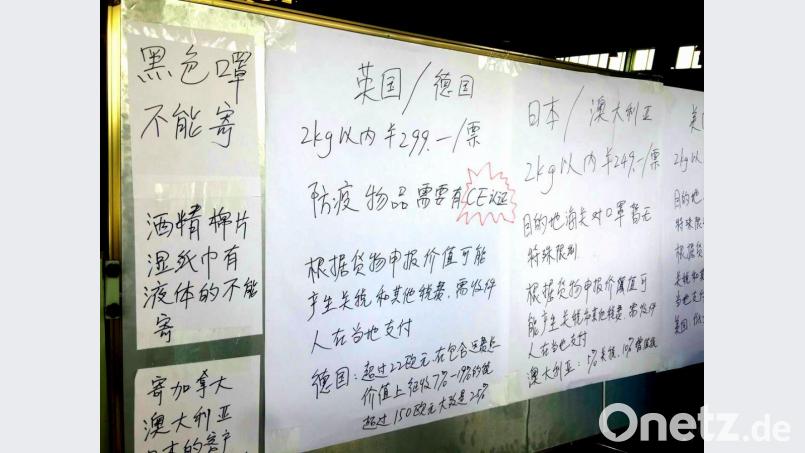 黑色罩
不能寄
酒精棉片
湿纸巾有
液体的不能
寄
寄加拿大
澳大利亚
日本的客户
英国/德国
2kg以内¥299.—/票
防疫物品需要有CE认证
根据货物申报价值可能
产生关税和其他税费,需收件
人在当地支付
德国:超过22欧元,在包含运费总
价值上征收7%-19%的税
超过150欧元大致是25%
日本/澳大利亚
2kg以内¥249.—/票
目的地海关对口罩暂无
特殊限制
根据货物申报价值可
能产生关税和其他税费,需收件
人在当地支付
澳大利亚:5%关税,10%增值税
美
2kg以
目的地
特殊限
根据
关税和
当地支付
美国:
Onetz.de